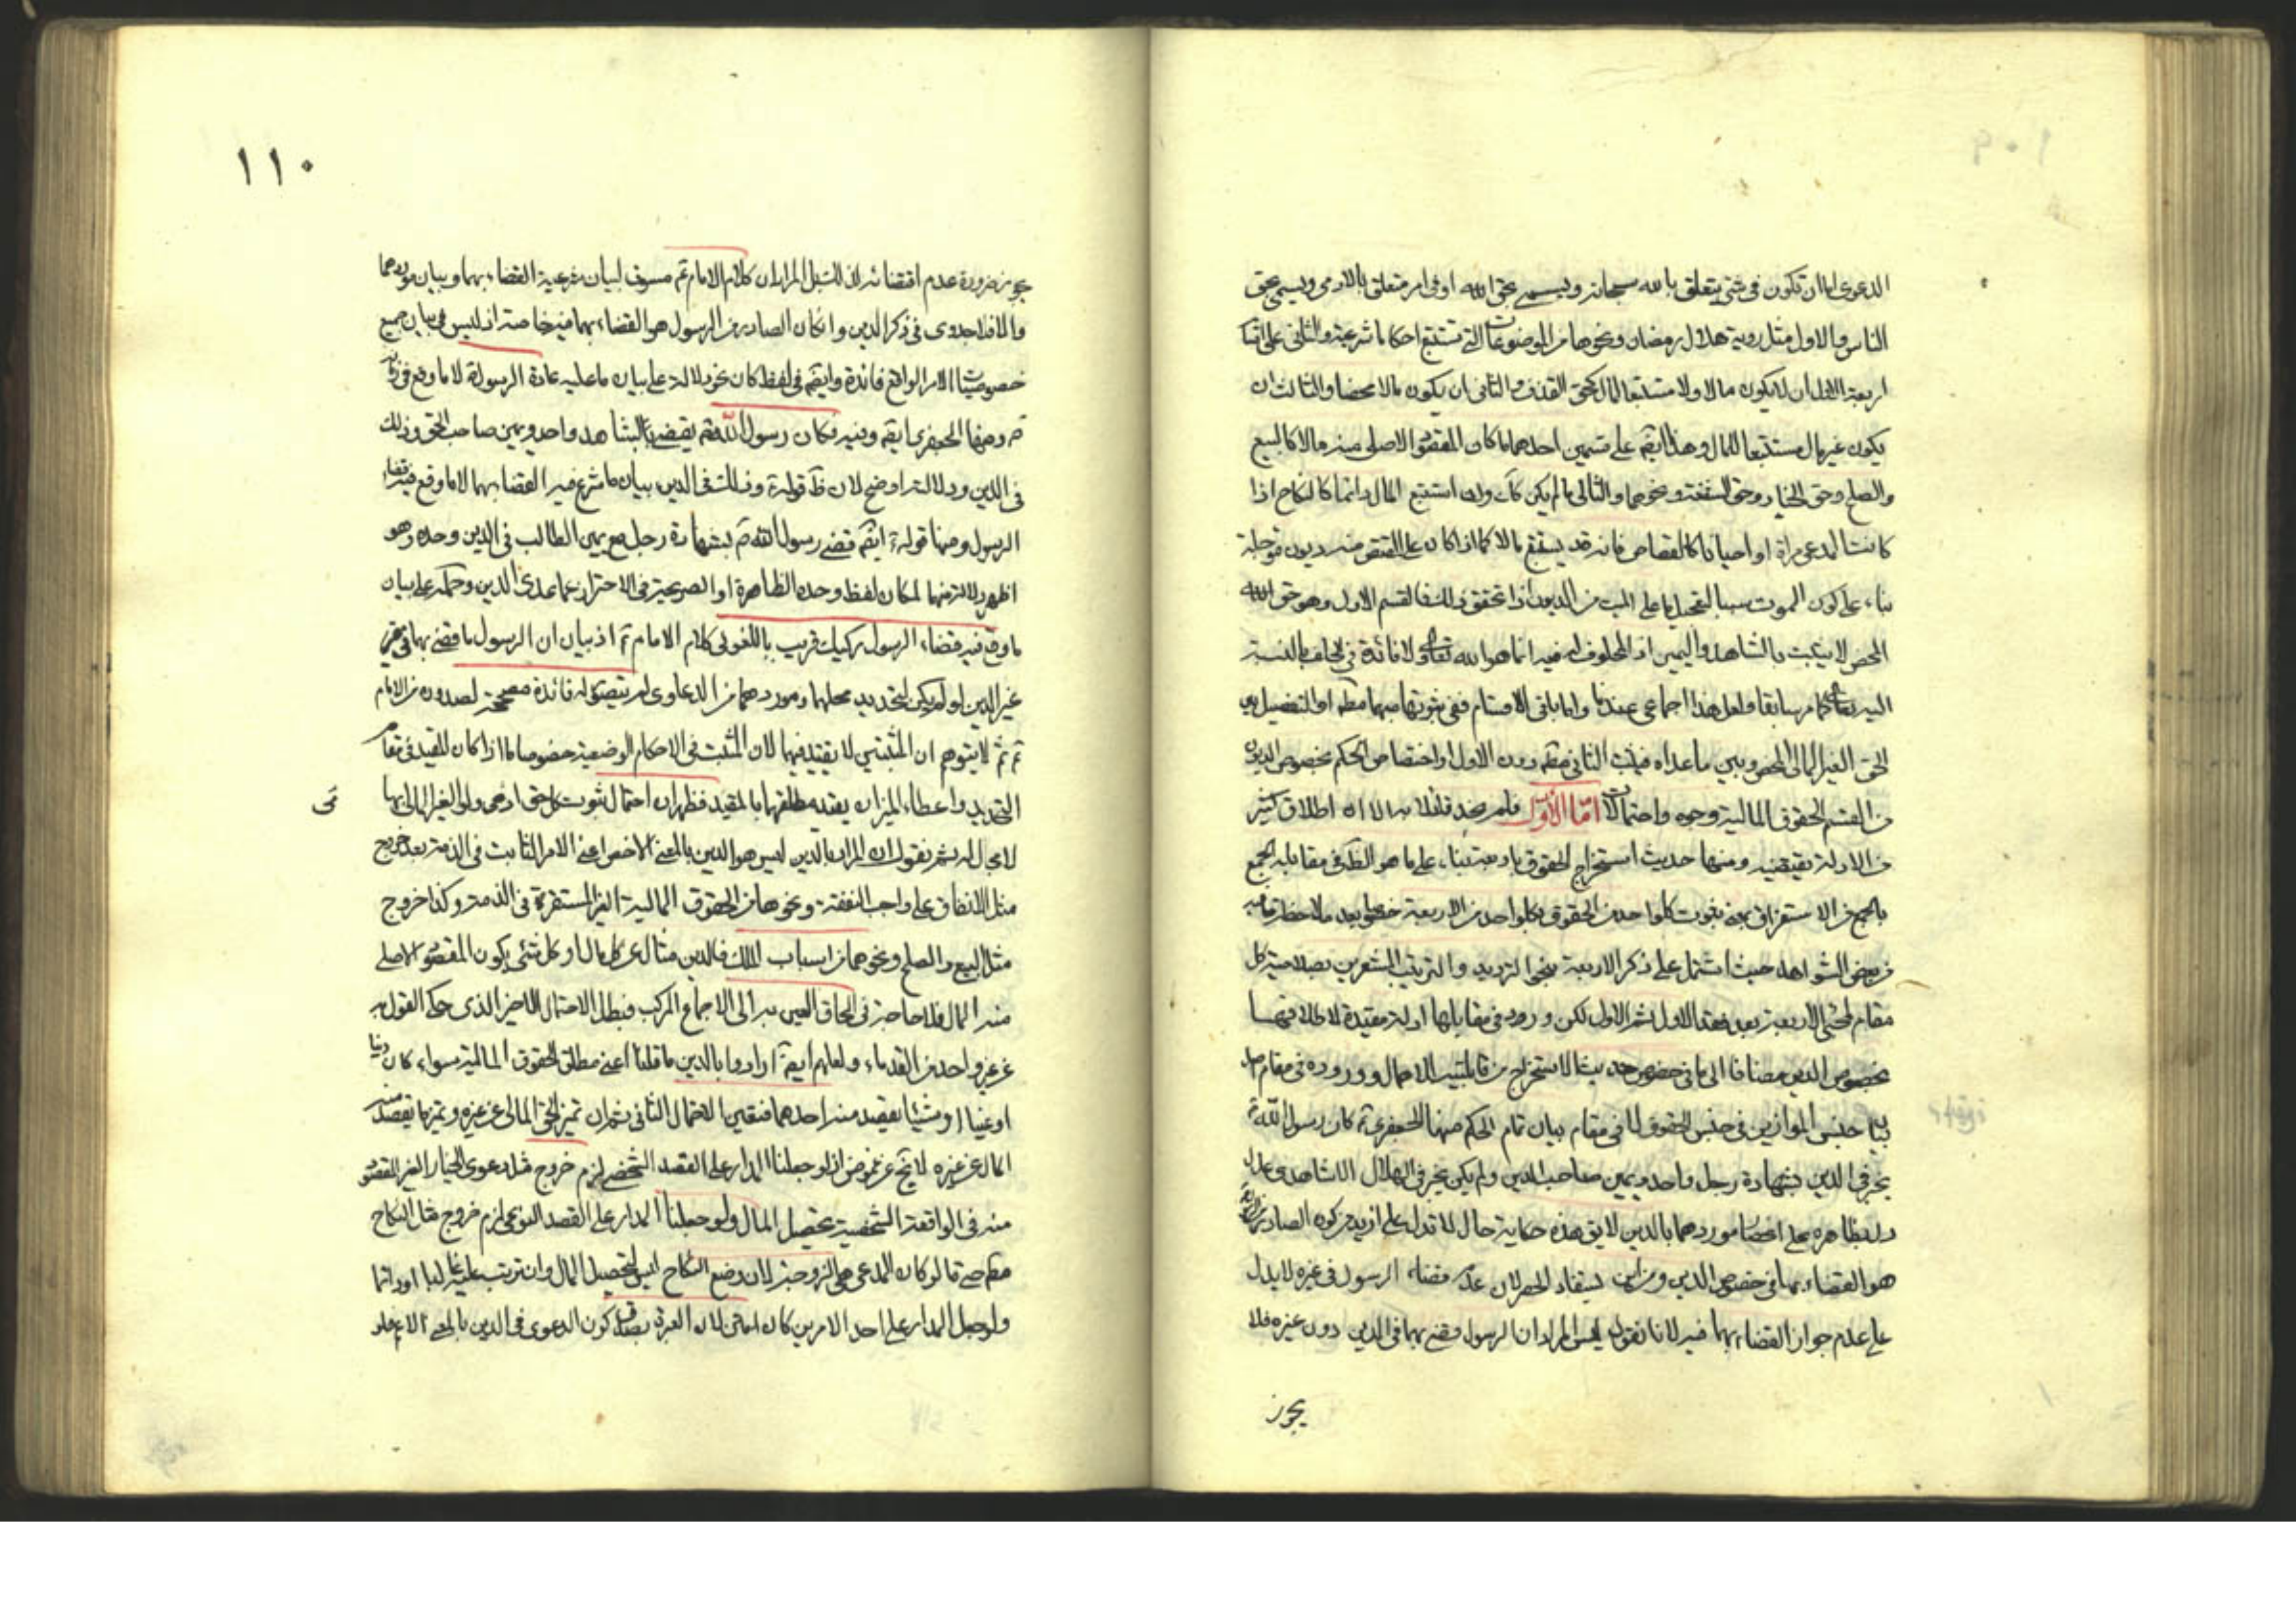 الدعوى اما ان تكون في شئ يتعلق بالله سبحانه ويسمى بحق الله او في امر متعلق بالادمى ويسمى بحق
الناس والاول مثل روية هلال رمضان ونحوها من الموضوعات التى تستتبع احكاما شرعية والثانى على اقسام
اربعة الاول ان لا يكون مالا ولا مستتبعا للمال كحق القذف والثانى ان يكون مالا محضا والثالث ان
يكون غير مال مستتبعا للمال وهذا ايضا على قسمين احدهما ما كان المقصود الاصلى منه مالا كالبيع
والصلح وحق الخيار وحق الشفعة ونحوهما والثانى ما لم يكن كك وان استتبع المال دائما كالنكاح اذا
كانت المدعى مراة او احيانا كالقصاص فانه قد يستتبع مالا كما اذا كان على المقتص منه ديون مؤجلة
بناء على كون الموت سببا لتعجيل ما على الميت من الديون اذا تحقق ذلك فالقسم الاول وهو حق الله
المحض لا يثبت بالشاهد واليمين اذ المحلوف له فيه انما هو الله تعالى ولا فائدة في الحلف بالنسبة
اليه تعالى كما مر سابقا ولعل هذا اجماعى عندنا واما باقى الاقسام ففى ثبوتها بهما مطلقا او التفصيل بين
الحق الغير المالى المحض وبين ما عداه فيثبت الثانى مطلقا دون الاول او اختصاص الحكم بخصوص الديون
من القسم الحقوق المالية وجوه واحتمالات اما الاول فلم نجد قائلا به الا ان اطلاق كثير
من الادلة يقتضيه ومنها حديث استخراج الحقوق باربعة بناء على ما هو الظاهر في مقابلة الجمع
بالجمع من الاستغراق بمعنى ثبوت كل واحد من الحقوق بكل واحد من الاربعة خصوصا بعد ملاحظة ما فيه
من بعض الشواهد حيث اشتمل على ذكر الاربعة بنحو الترديد والترتيب المشعرين بصلاحية كل
مقام لمجئ الاربعة بعد فقد الاول ثم الاول لكن ورود في مقابلها ادلة مقيدة لاطلاقها
بخصوص الدين مضافا الى ما في خصوص حديث الاستخراج من الاجمال ووروده في مقام
بيان جنس الموازين في جنس الحقوق لا في مقام بيان تمام الحكم منها الجعفرى كان رسول الله
يجيز في الدين شهادة رجل واحد ويمين صاحب الدين ولم يكن يجيز في الهلال الا شاهدى عدل
دل بظاهره على اختصاص موردهما بالدين لا يق هذه حكاية حال لا تدل على ازيد من كون الصادر
هو القضاء بهما في خصوص الدين ومن اين يستفاد الحصر لان عدم قضاء الرسول في غيره لا يدل
على عدم جواز القضاء بهما فيه لانا نقول ليس المراد ان الرسول قضى بهما في الدين دون غيره فلا
يجوز
١١٠
يجوز ضرورة عدم اقتضائه لذلك بل المراد ان كلام الامام مسوق لبيان شرعية القضاء بهما وبيان موردهما
والا فلا جدوى في ذكر الدين وان كان الصادر من الرسول هو القضاء بهما فيه خاصة اذ ليس في بيان جميع
خصوصيات الامر الواقع فائدة وايضا في لفظ كان نحو دلالة على بيان ما عليه عادة الرسول لا ما وقع في
ومنها الجعفرى ايضا وفيه فكان رسول الله يقضى بالشاهد واحد ويمين صاحب الحق وذلك
في الدين ودلالته اوضح لان ظ قوله وذلك في الدين بيان ما شرع فيه القضاء بهما لا ما وقع فيه قضاء
الرسول ومنها قوله ايضا قضى رسول الله بشهادة رجل مع يمين الطالب في الدين وحده وهو
اظهر دلالة منها لمكان لفظ وحده الظاهرة او الصريحة في الاحتراز عما عدى الدين وحمله على بيان
ما وقع فيه قضاء الرسول ركيك قريب باللغو في كلام الامام اذ بيان ان الرسول ما قضى بهما في
غير الدين لو لم يكن لتحديد محلهما وموردهما من الدعاوى لم يتصور له فائدة مصححة لصدوره من الامام
ثم لا يتوهم ان المثبتين لا يقيد فيهما لان المثبت في الاحكام الوضعية خصوصا اذا كان للقيد في مقام
التحديد واعطاء الميزان يقيد مطلقها بالمقيد فظهر ان احتمال ثبوت كل حق ادمى ولو الغير المالى بها
لا مجال له ثم نقول ان المراد بالدين ليس هو الدين بالمعنى الاخص اعنى الامر الثابت في الذمة بعد خروج
مثل الانفاق على واجب النفقة ونحوها من الحقوق المالية الغير المستقرة في الذمة وكذا خروج
مثل البيع والصلح ونحوهما من اسباب الملك فالدين مثال عن كل مال او كل شئ يكون المقصود الاصلى
منه المال فلا حاجة في الحاق العين به الى الاجماع المركب فبطل الاحتمال الاخير الذى حكى القول به
عن غير واحد من القدماء ولعلهم ايضا ارادوا بالدين ما قلنا اعنى مطلق الحقوق المالية سواء كان دينا
او عينا او شيئا يقصد منه احدهما فتعين الاحتمال الثانى ثم ان تميز الحق المالى عن غيره وتميز ما يقصد منه
المال عن غيره لا يخ عن غموض اذ لو جعلنا المدار على القصد الشخصى لزم خروج مثل دعوى الخيار الغير المقصود
منه في الواقعة الشخصية تحصيل المال ولو جعلنا المدار على القصد النوعى لزم خروج مثل النكاح
مطلقا حتى فيما لو كان المدعى هى الزوجة لان وضع النكاح ليس لتحصيل المال وان ترتب عليه غالبا او دائما
ولو جعل المدار على احد الامرين كان امتن لان العبرة بصدق كون الدعوى في الدين بالمعنى الاعم ولو